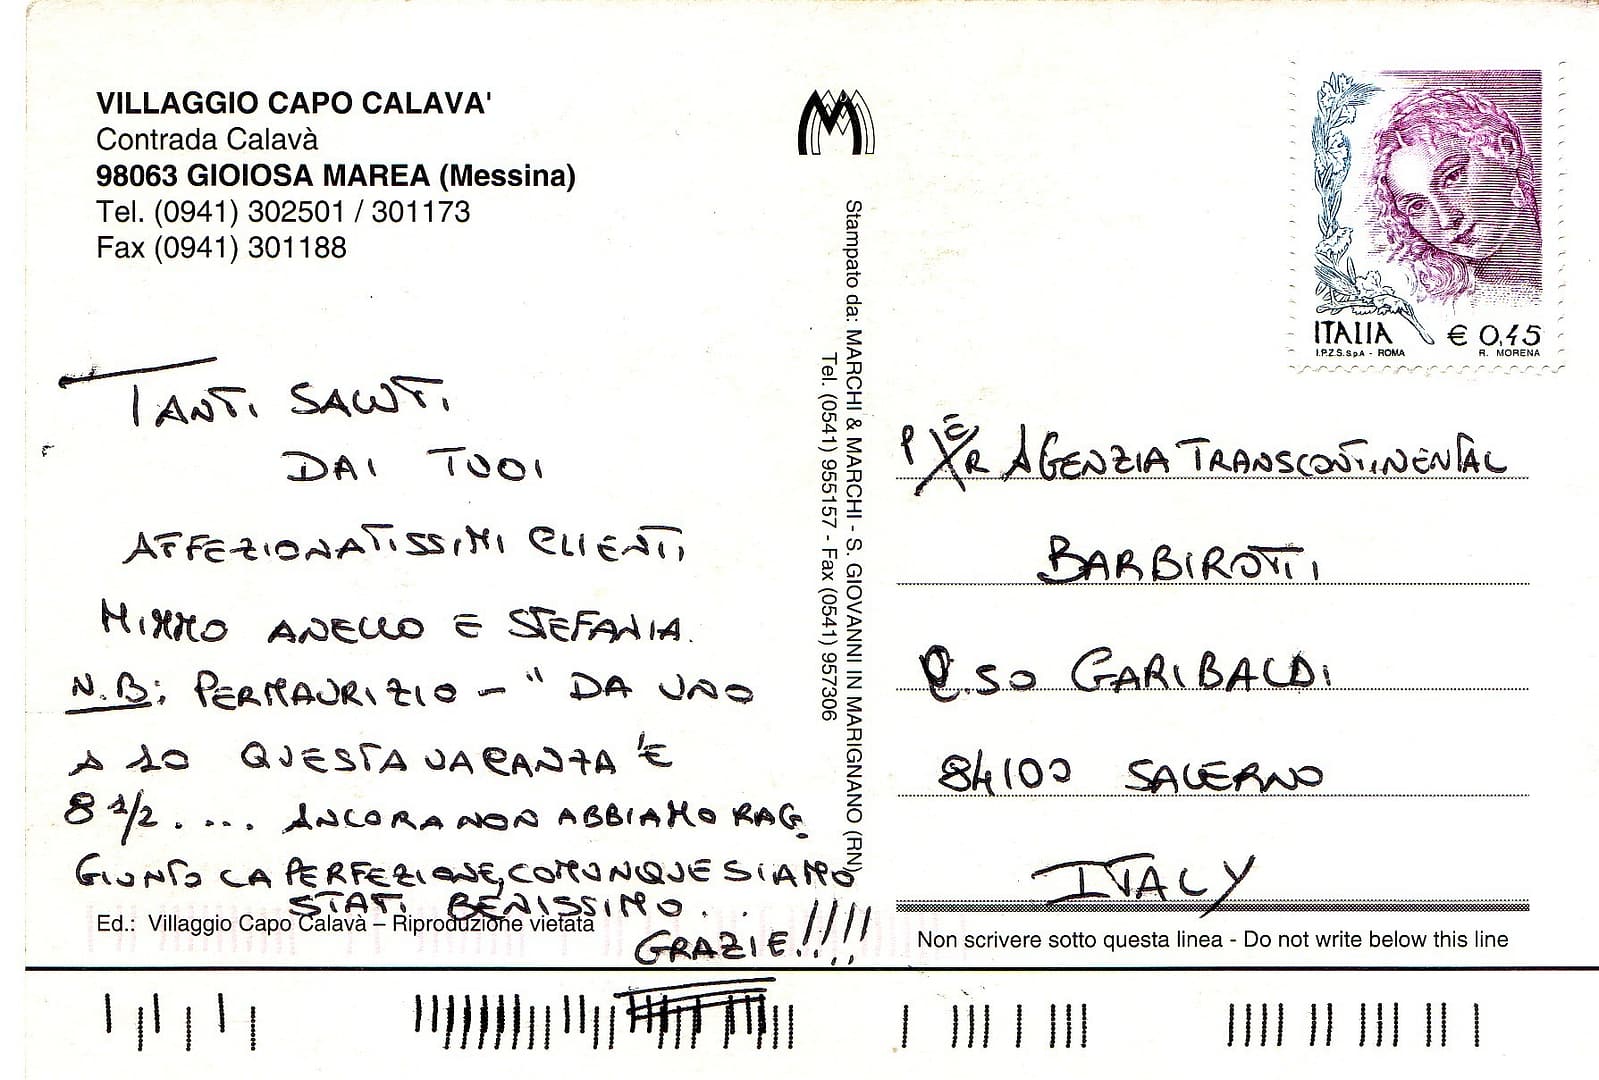 VILLAGGIO CAPO CALAVA'
Contrada Calavà
98063 GIOIOSA MAREA (Messina)
Tel. (0941) 302501 / 301173
Fax (0941) 301188
TANTI SALUTI
DAI TUOI
AFFEZIONATISSIMI CLIENTI
MIMMO ANELLO E STEFANIA.
N.B: PER MAURIZIO - " DA UNO
A 10 QUESTA VACANZA 'E
8 1/2 . ... ANCORA NON ABBIAMO RAG
GIUNTO LA PERFEZIONE, COMUNQUE SIAMO
STATI BENISSIMO . . .
GRAZIE!!!!!
Ed.: Villaggio Capo Calavà – Riproduzione vietata
Stampato da: MARCHI & MARCHI - S. GIOVANNI IN MARIGNANO (RN)
Tel. (0541) 955157 - Fax (0541) 957306
ITALIA € 0,45
I.P.Z.S. S.p.A - ROMA R. MORENA
AGENZIA TRANSCONTINENTAL
BARBIROTTI
C.SO GARIBALDI
84100 SALERNO
ITALY
Non scrivere sotto questa linea - Do not write below this line